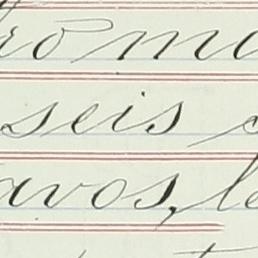 ro ma
seis c
avos, le